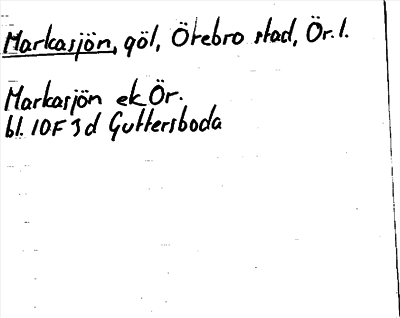 Markasjön, göl, Örebro stad, Ör. l.
Markasjön ek Ör.
bl. 10F 3d Guttersboda